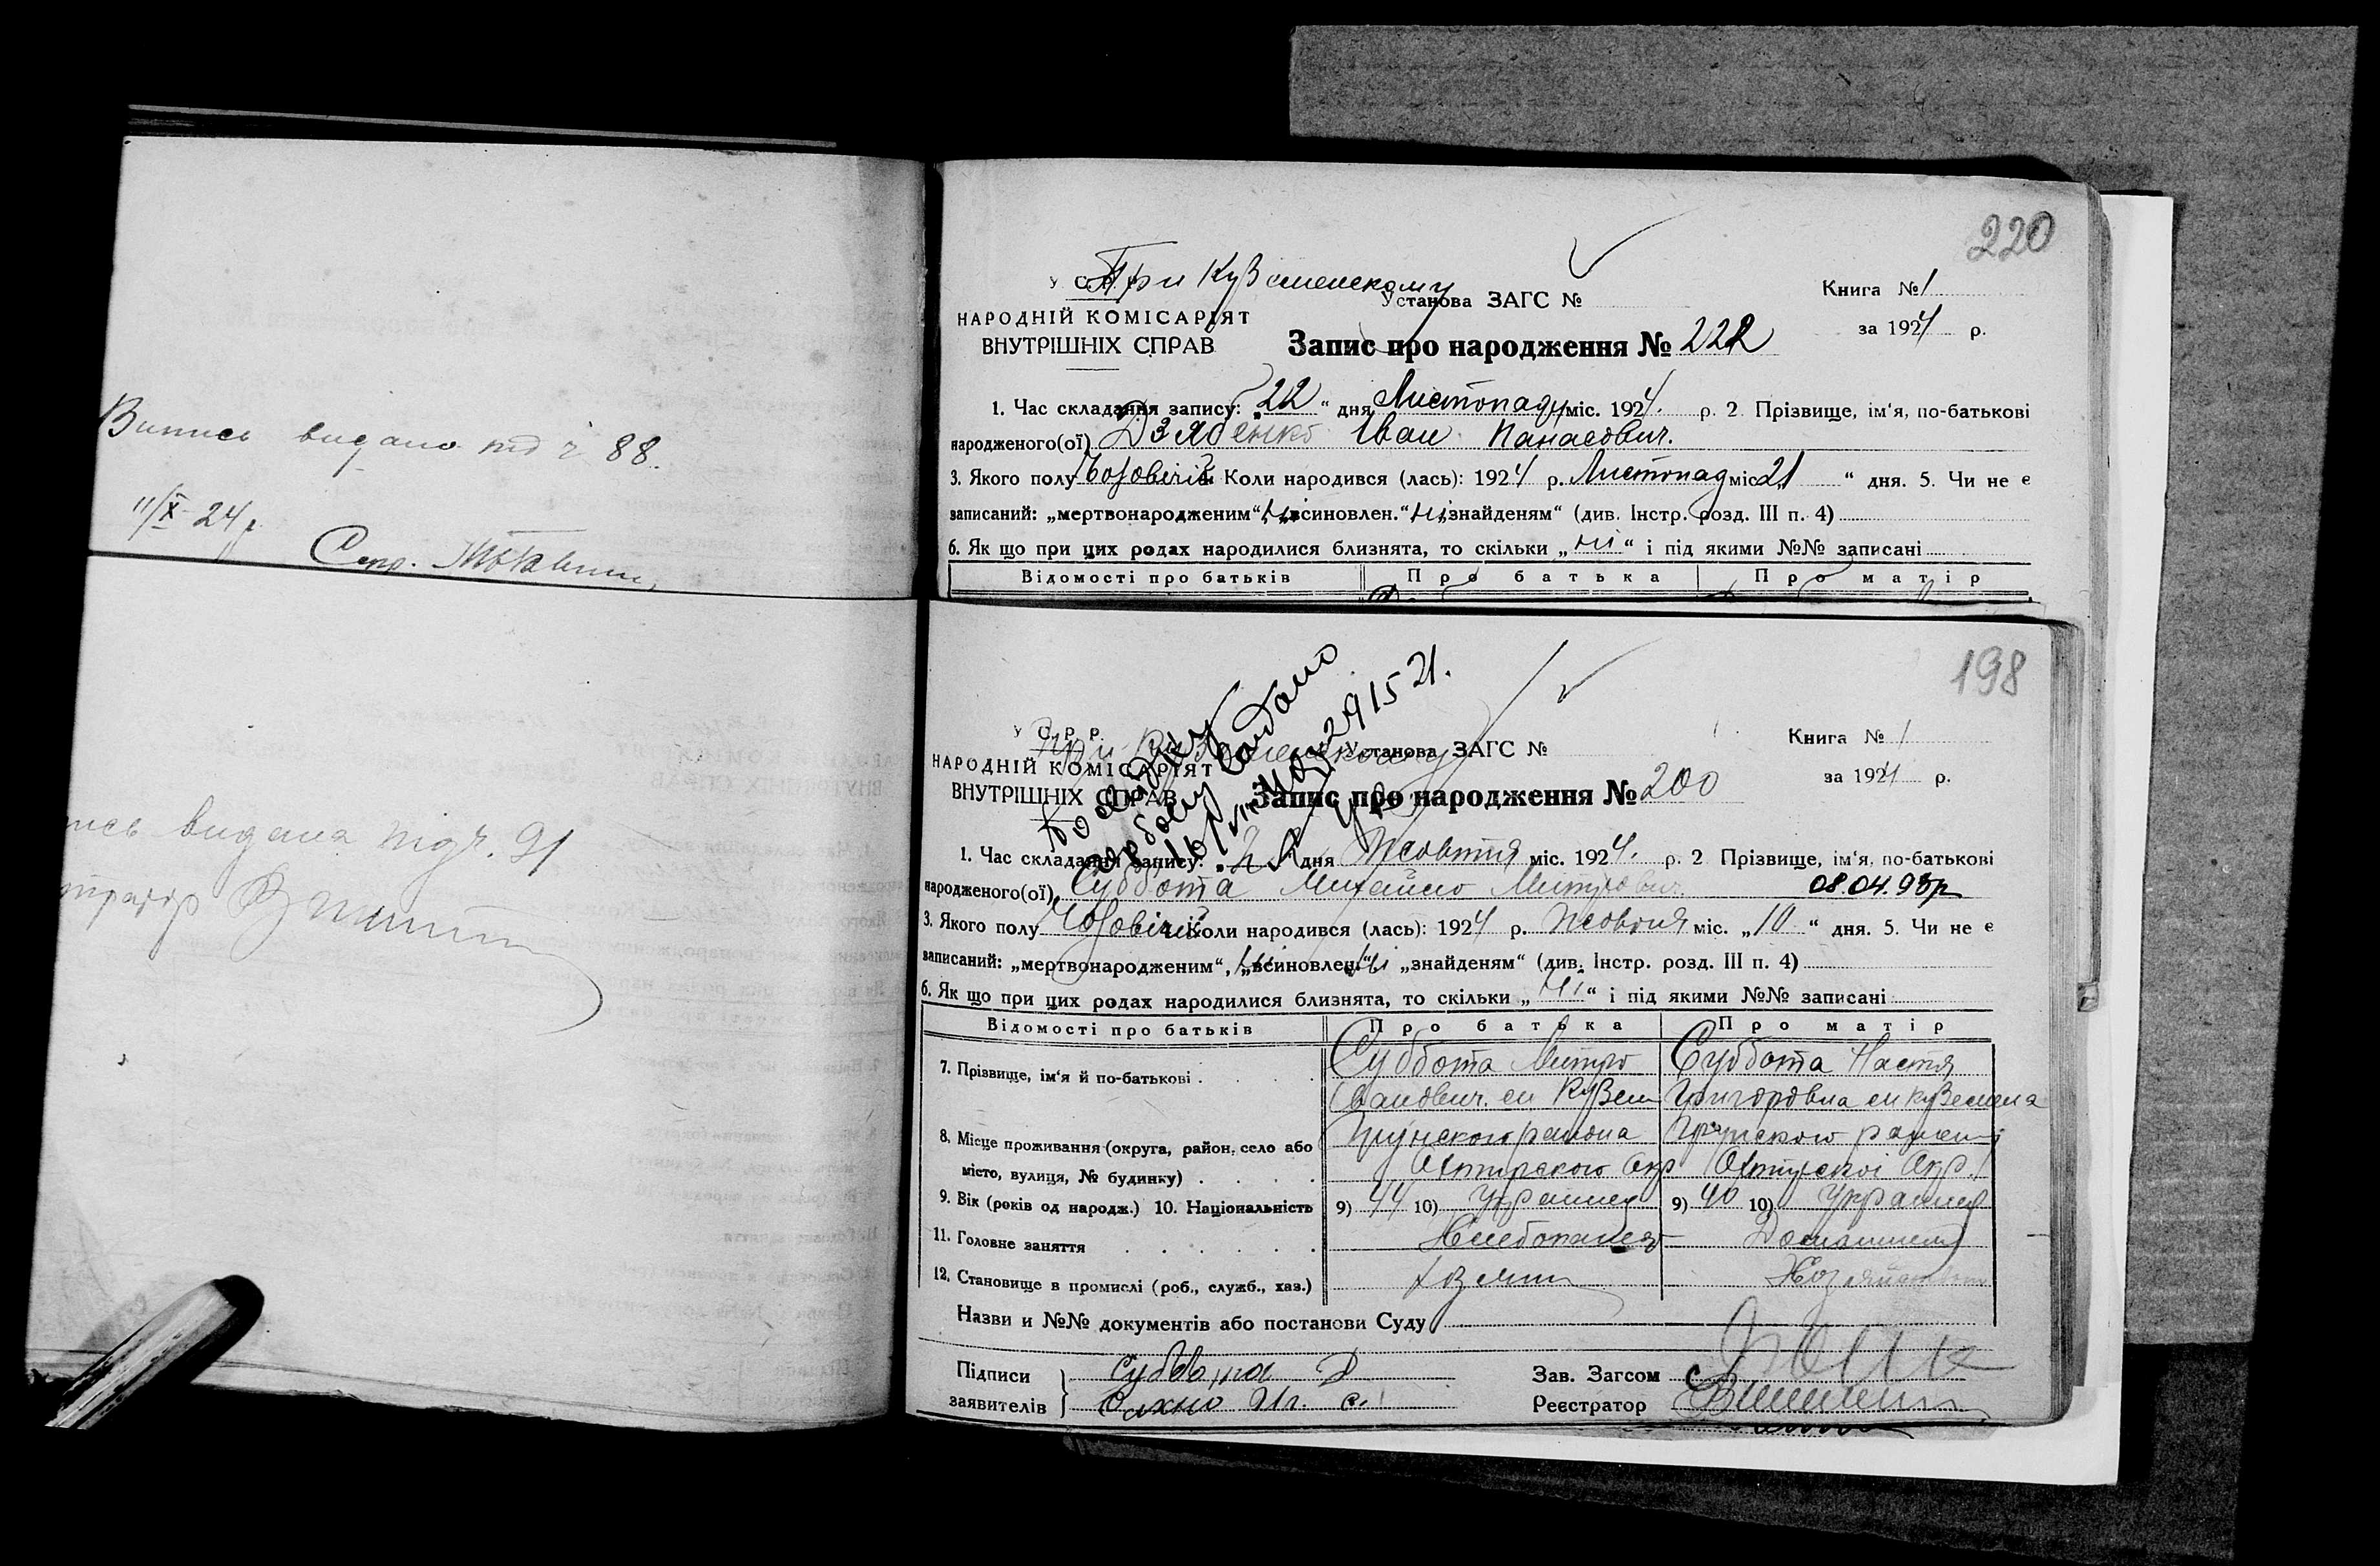 Випись видано під ч 88.
11/X 24 р
220
При Куземенскому
У С. Р. Р.
Установа ЗАГС №
Книга № 1
НАРОДНІЙ КОМІСАРІЯТ
ВНУТРІШНІХ СПРАВ
за 1924 р.
Запис про народження № 222
1. Час складання запису: „22“ дня Листопаду міс. 1924. р. 2 Прізвище, ім'я, по-батькові
народженого(ої) Дзябенко Іван Панасович.
3. Якого полу Чоловічий 4. Коли народився (лась): 1924 р. Листопад міс. „21“ дня. 5. Чи не є
записаний: „мертвонародженим“, ні „всиновлен.“ ні „знайденям“ (див. Інстр. розд. III п. 4)
6. Як що при цих родах народилися близнята, то скільки „ні“ і під якими №№ записані
Відомості про батьків Про батька Про матір
видана під ч. 91
198
видано
У С. Р. Р.
При Куземенскому
Установа ЗАГС №
Книга № 1
НАРОДНІЙ КОМІСАРІЯТ
ВНУТРІШНІХ СПРАВ
за 1924 р.
Запис про народження № 200
1. Час складання запису: дня Жовтня міс. 1924. р. 2 Прізвище, ім'я, по-батькові
народженого(ої) Суббота Михайло Митрович 08.04.93р
3. Якого полу Чоловічий 4. Коли народився (лась): 1924 р. Жовтня міс. „10“ дня. 5. Чи не є
записаний: „мертвонародженим“, ні „всиновлен.“ ні „знайденям“ (див. Інстр. розд. III п. 4)
6. Як що при цих родах народилися близнята, то скільки „ні“ і під якими №№ записані
Відомості про батьків Про батька Про матір
7. Прізвище, ім'я й по-батькові Суббота Митро Суббота Настя
Іванович. сп Кузем Григоровна сп Куземена
8. Місце проживання (округа, район, село або Грунского района Грунского района
місто, вулиця, № будинку) Охтирского Окр Охтирскоі Окр.
9. Вік (років од народж.) 10. Національність 9) 44 10) Украинец 9) 40 10) Украинка
11. Головне заняття Хлебопашев Домашнем
12. Становище в промислі (роб., служб., хаз.) Хозяин Хозяйством
Назви и №№ документів або постанови Суду
Підписи Суббота Д Зав. Загсом
заявителів Сахно Иг. С. Реєстратор